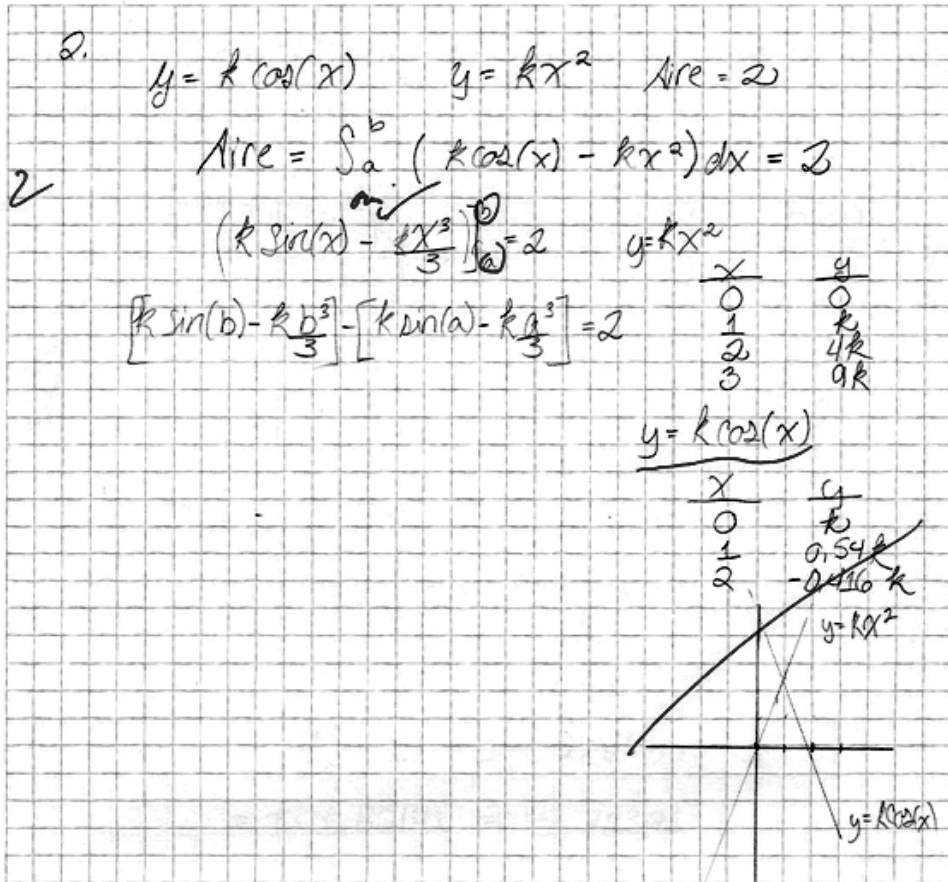 2.
y = k cos(x) y = kx² Aire = 2
Aire = ∫ₐᵇ (k cos(x) - kx²) dx = 2
2
(k sin(x) - kx³/3)]ₐᵇ = 2
[k sin(b) - k b³/3] - [k sin(a) - k a³/3] = 2
y = kx²
x y
0 0
1 k
2 4k
3 9k
y = k cos(x)
x y
0 k
1 0,54 k
2 -0,416 k
y = kx²
y = k cos(x)